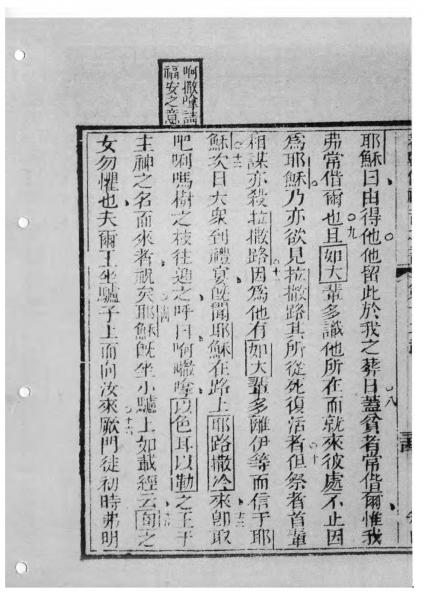 啊撒喹請
福安之意
耶穌曰由得他他留此於我之葬日蓋貧者常偕爾惟我
八
弗常偕爾也且如大輩多識他所在而就來彼處不止因
九
為耶穌乃亦欲見拉撒路其所從死復活者但祭者首輩
十
相謀亦殺拉撒路因為他有如大輩多離伊等而信于耶
十一
穌次日大衆到禮宴旣聞耶穌在路上耶路撒冷來卽取
十二
十三
吧唎嗎樹之枝往迎之呼曰啊撒喹以色耳以勒之王于
主神之名而來者祝矣耶穌旣坐小驢上如載經云旬之
十四
十五
女勿懼也夫爾王坐驢子上而向汝來厥門徒初時弗明
十六